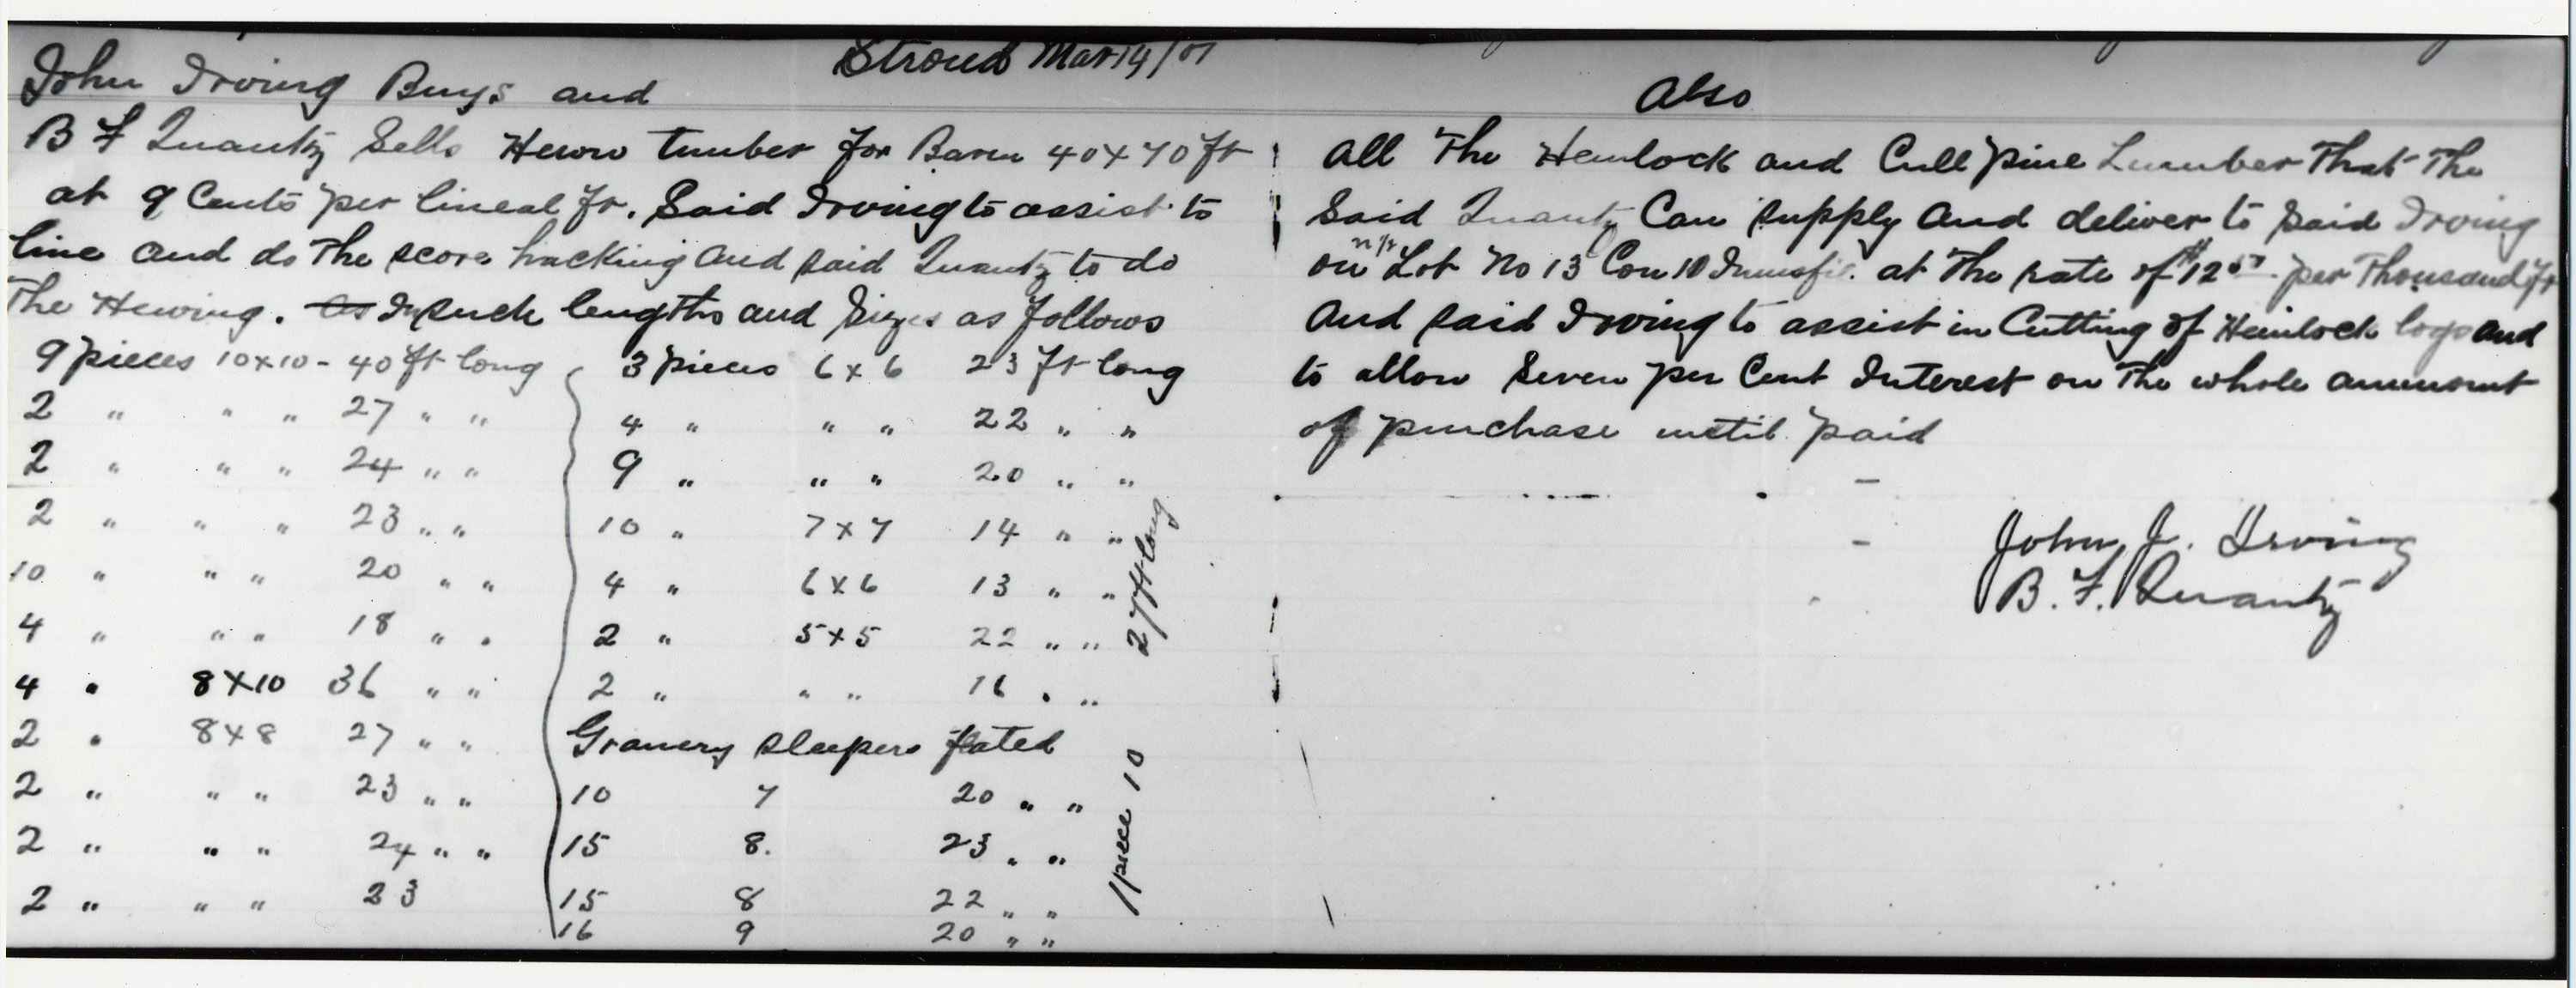 Stroud Mar 14/01
John Irving Buys and
B F Quantz Sells Hewn timber for Baren 40x70 ft
at 9 Cents per lineal ft. Said Irving to assist to
line and do The score hacking and said Quantz to do
The Hewing. As In such lengths and Sizes as follows
9 pieces 10x10 - 40 ft long
2 " " " 27 " "
2 " " " 24 " "
2 " " " 23 " "
10 " " " 20 " "
4 " " " 18 " "
4 " 8x10 36 " "
2 " 8x8 27 " "
2 " " " 23 " "
2 " " " 24 " "
2 " " " 23
3 pieces 6x6 23 ft long
4 " " " 22 " "
9 " " " 20 " "
10 " 7x7 14 " "
4 " 6x6 13 " "
2 " 5x5 22 " "
2 " " " 16 " "
Granery sleepers flated
10 7 20 " "
15 8. 23 " "
15 8 22 " "
16 9 20 " "
1 piece 10 27 ft long
Also
All The Hemlock and Cull pine Lumber That The
Said Quantz Can supply and deliver to Said Irving
on Lot No 13 Con 10 Innisfil. at The rate of $12 50 per Thousand ft
And said Irving to assist in Cutting of Hemlock logs and
to allow Seven per Cent Interest on The whole ammount
of purchase until paid
John J. Irving
B. F. Quantz